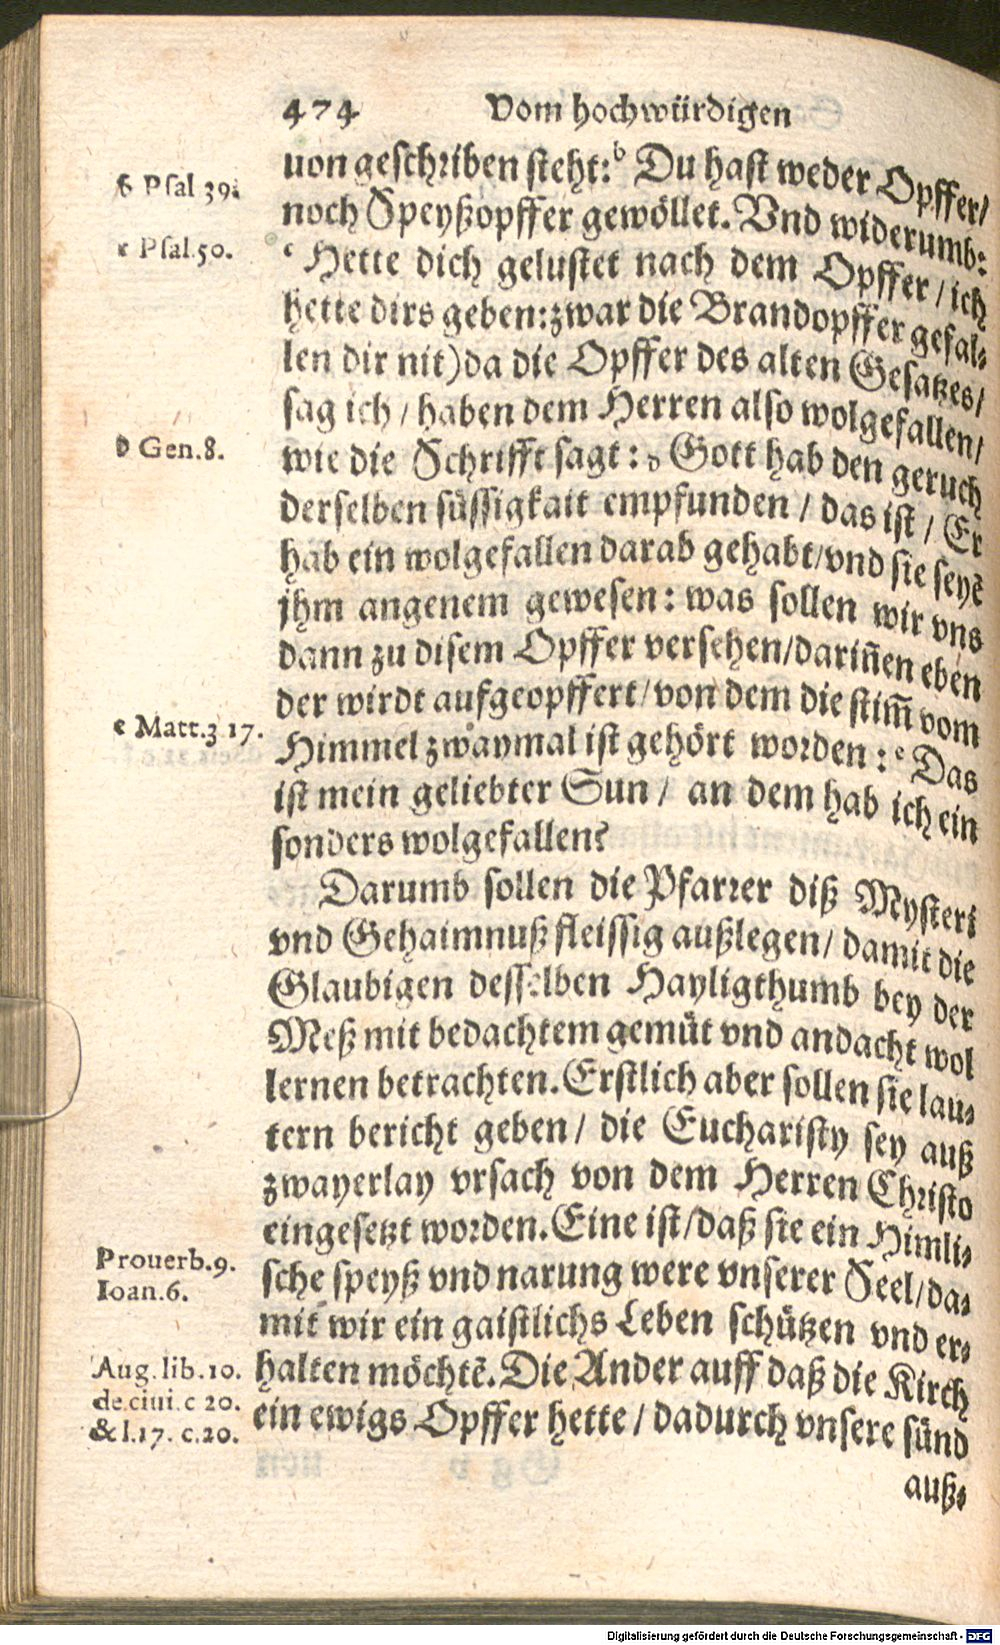 474 Vom hochwürdigen
uon geschriben steht: b Du hast weder Opffer/
noch Speyßopffer gewöllet. Vnd widerumb:
c Hette dich gelustet nach dem Opffer / ich
hette dirs geben: zwar die Brandopffer gefal-
len dir nit) da die Opffer des alten Gesatzes/
sag ich / haben dem Herren also wolgefallen/
wie die Schrifft sagt: d Gott hab den geruch
derselben süssigkait empfunden / das ist / Er
hab ein wolgefallen darab gehabt/vnd sie seyẽ
jhm angenem gewesen: was sollen wir vns
dann zu disem Opffer versehen/dariñen eben
der wirdt aufgeopffert/von dem die stim̃ vom
Himmel zwaymal ist gehört worden: e Das
ist mein geliebter Sun / an dem hab ich ein
sonders wolgefallen?
Darumb sollen die Pfarrer diß Mysteri
vnd Gehaimnuß fleissig außlegen/ damit die
Glaubigen desselben Hayligthumb bey der
Meß mit bedachtem gemüt vnd andacht wol
lernen betrachten. Erstlich aber sollen sie lau-
tern bericht geben / die Eucharisty sey auß
zwayerlay vrsach von dem Herren Christo
eingesetzt worden. Eine ist/daß sie ein Himli-
sche speyß vnd narung were vnserer Seel/da-
mit wir ein gaistlichs Leben schützen vnd er-
halten möchtẽ. Die Ander auff daß die Kirch
ein ewigs Opffer hette / dadurch vnsere sünd
auß-
b Psal 39.
c Psal.50.
d Gen.8.
e Matt.3 17.
Prouerb.9.
Ioan.6.
Aug. lib. 10.
de ciui. c 20.
& l.17. c.20.
Digitalisierung gefördert durch die Deutsche Forschungsgemeinschaft - DFG